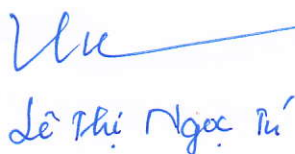 Lê Thị Ngọc Tú